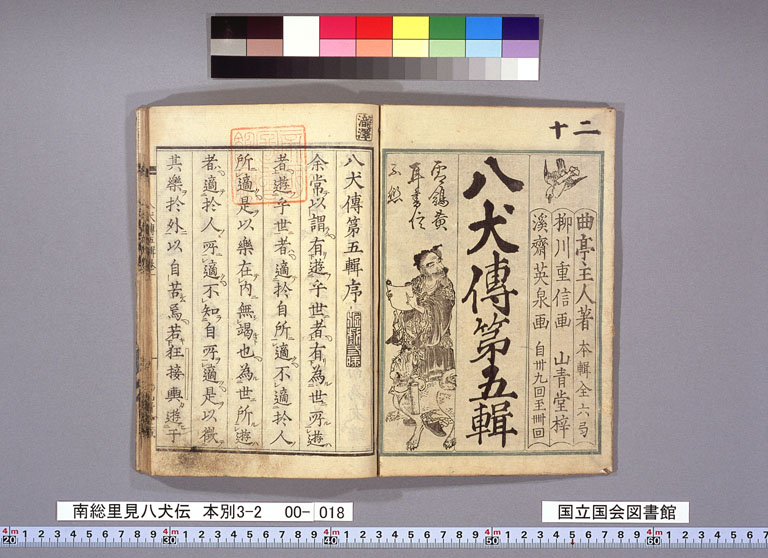 二
十
曲亭主人著 本輯全六弓
柳川重信画 山青堂梓
溪齋英泉画 自卅九回至卌回
八犬傳第五輯
瀧澤
八犬傳第五輯序
余常以謂有遊乎世者有為世所遊
者遊乎世者適於自所適不適於人
所適是以樂在内無謁也為世所遊
者適於人所適不知自所適是以徴
其樂於外以自苦焉若狂接輿遊乎
南総里見八犬伝 本別3-2 00- 018
国立国会図書館